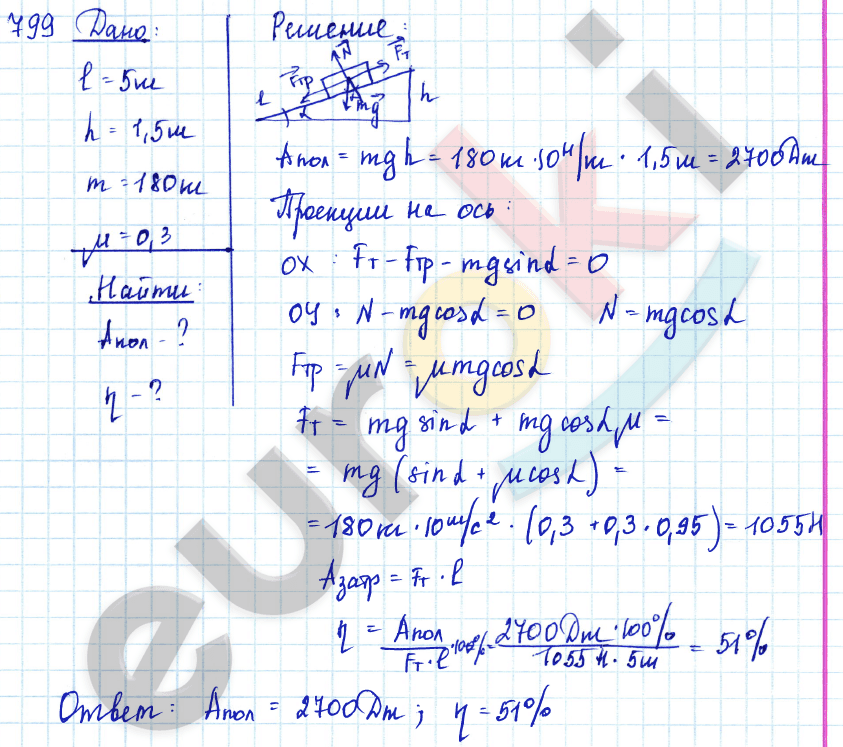 799 Дано:
l = 5м
h = 1,5м
m = 180кг
μ = 0,3
Найти:
Aпол - ?
η - ?
Решение:
N Fт
Fтр
l α mg h
Aпол = mgh = 180кг · 10Н/кг · 1,5м = 2700Дж
Проекции на ось:
OX : Fт - Fтр - mgsinα = 0
OY : N - mgcosα = 0 N = mgcosα
Fтр = μN = μmgcosα
Fт = mg sinα + mg cosα μ =
= mg (sinα + μcosα) =
= 180кг · 10м/с² · (0,3 + 0,3 · 0,95) = 1055Н
Aзатр = Fт · l
η = Aпол / Fт · l · 100% = 2700Дж · 100% / 1055Н · 5м = 51%
Ответ: Aпол = 2700Дж ; η = 51%
euroki